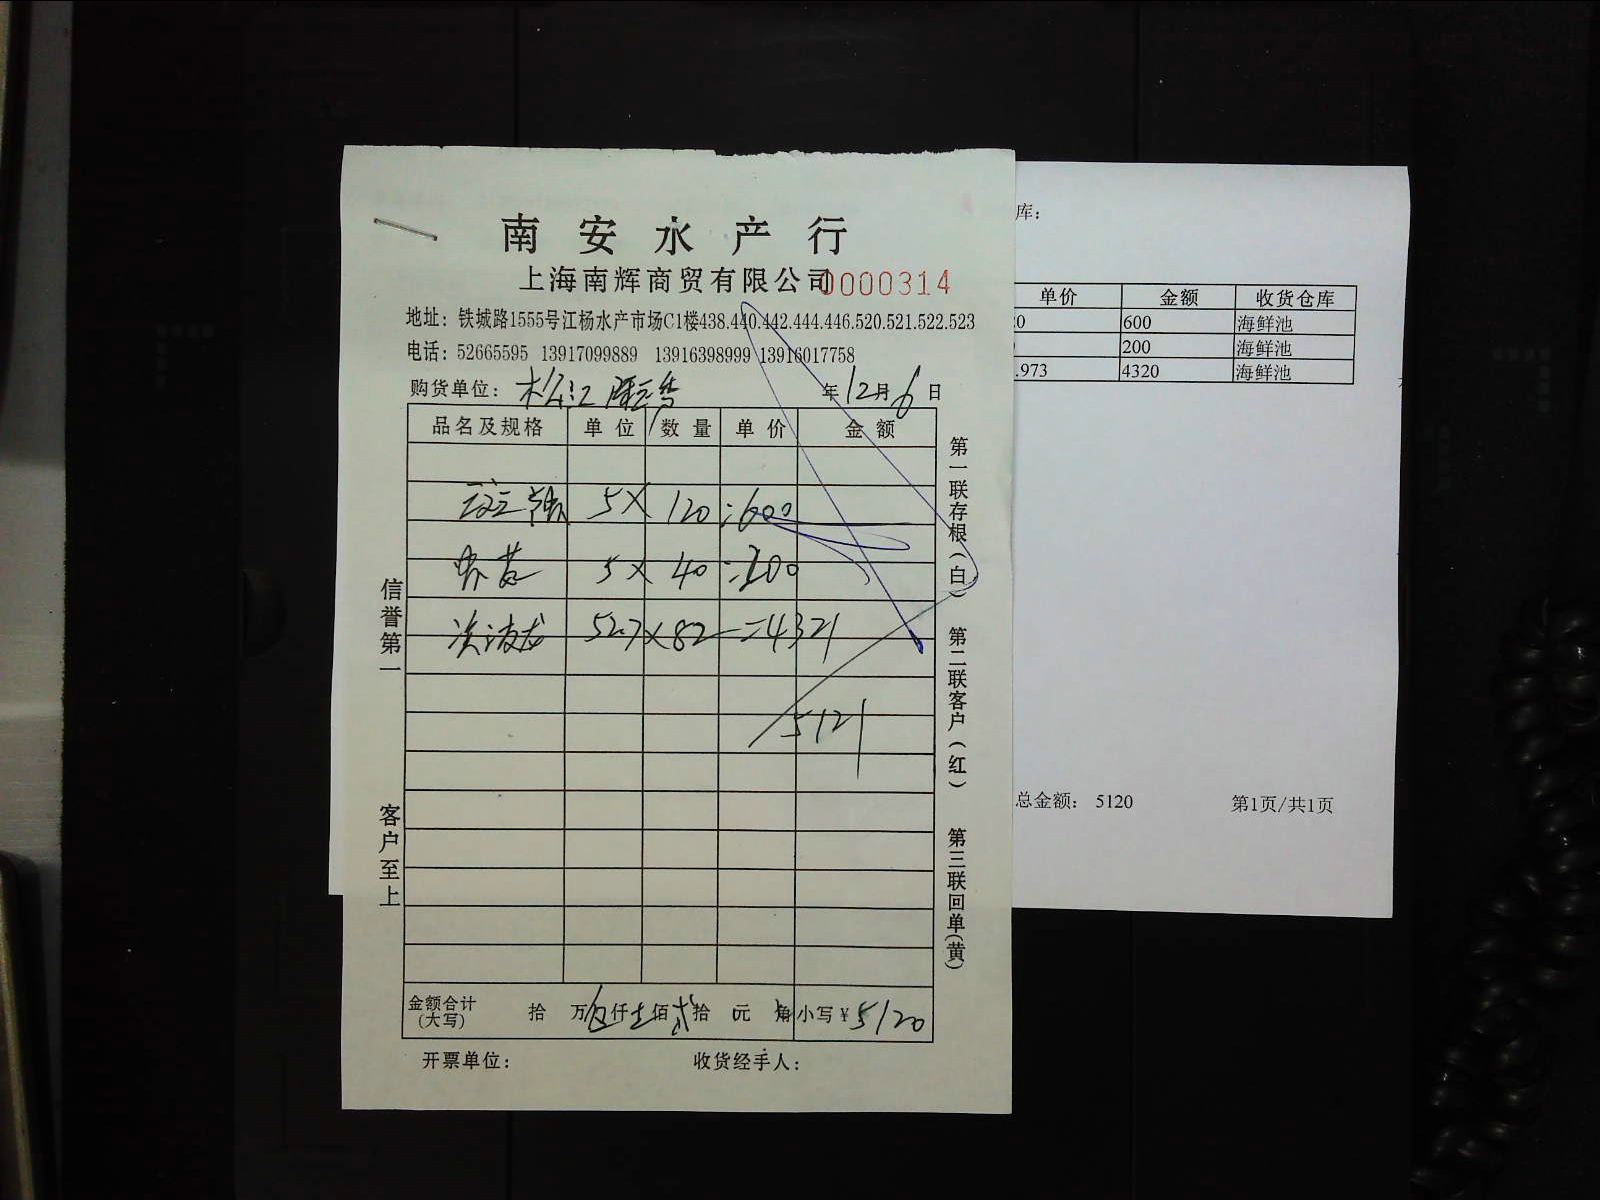 南安水产行
上海南辉商贸有限公司 0000314
地址：铁城路1555号江杨水产市场C1楼438.440.442.444.446.520.521.522.523
电话：52665595 13917099889 13916398999 13916017758
购货单位：松江 年12月6日
品名及规格 单位 数量 单价 金额
5X 120 =600
虾 5X 40 =200
龙 52.7X82 =4321
5121
金额合计(大写) 拾 万伍仟壹佰贰拾 元 角 小写¥ 5120
开票单位： 收货经手人：
信誉第一
客户至上
第一联存根(白) 第二联客户(红) 第三联回单(黄)
库：
单价 金额 收货仓库
600 海鲜池
200 海鲜池
.973 4320 海鲜池
总金额： 5120 第1页/共1页